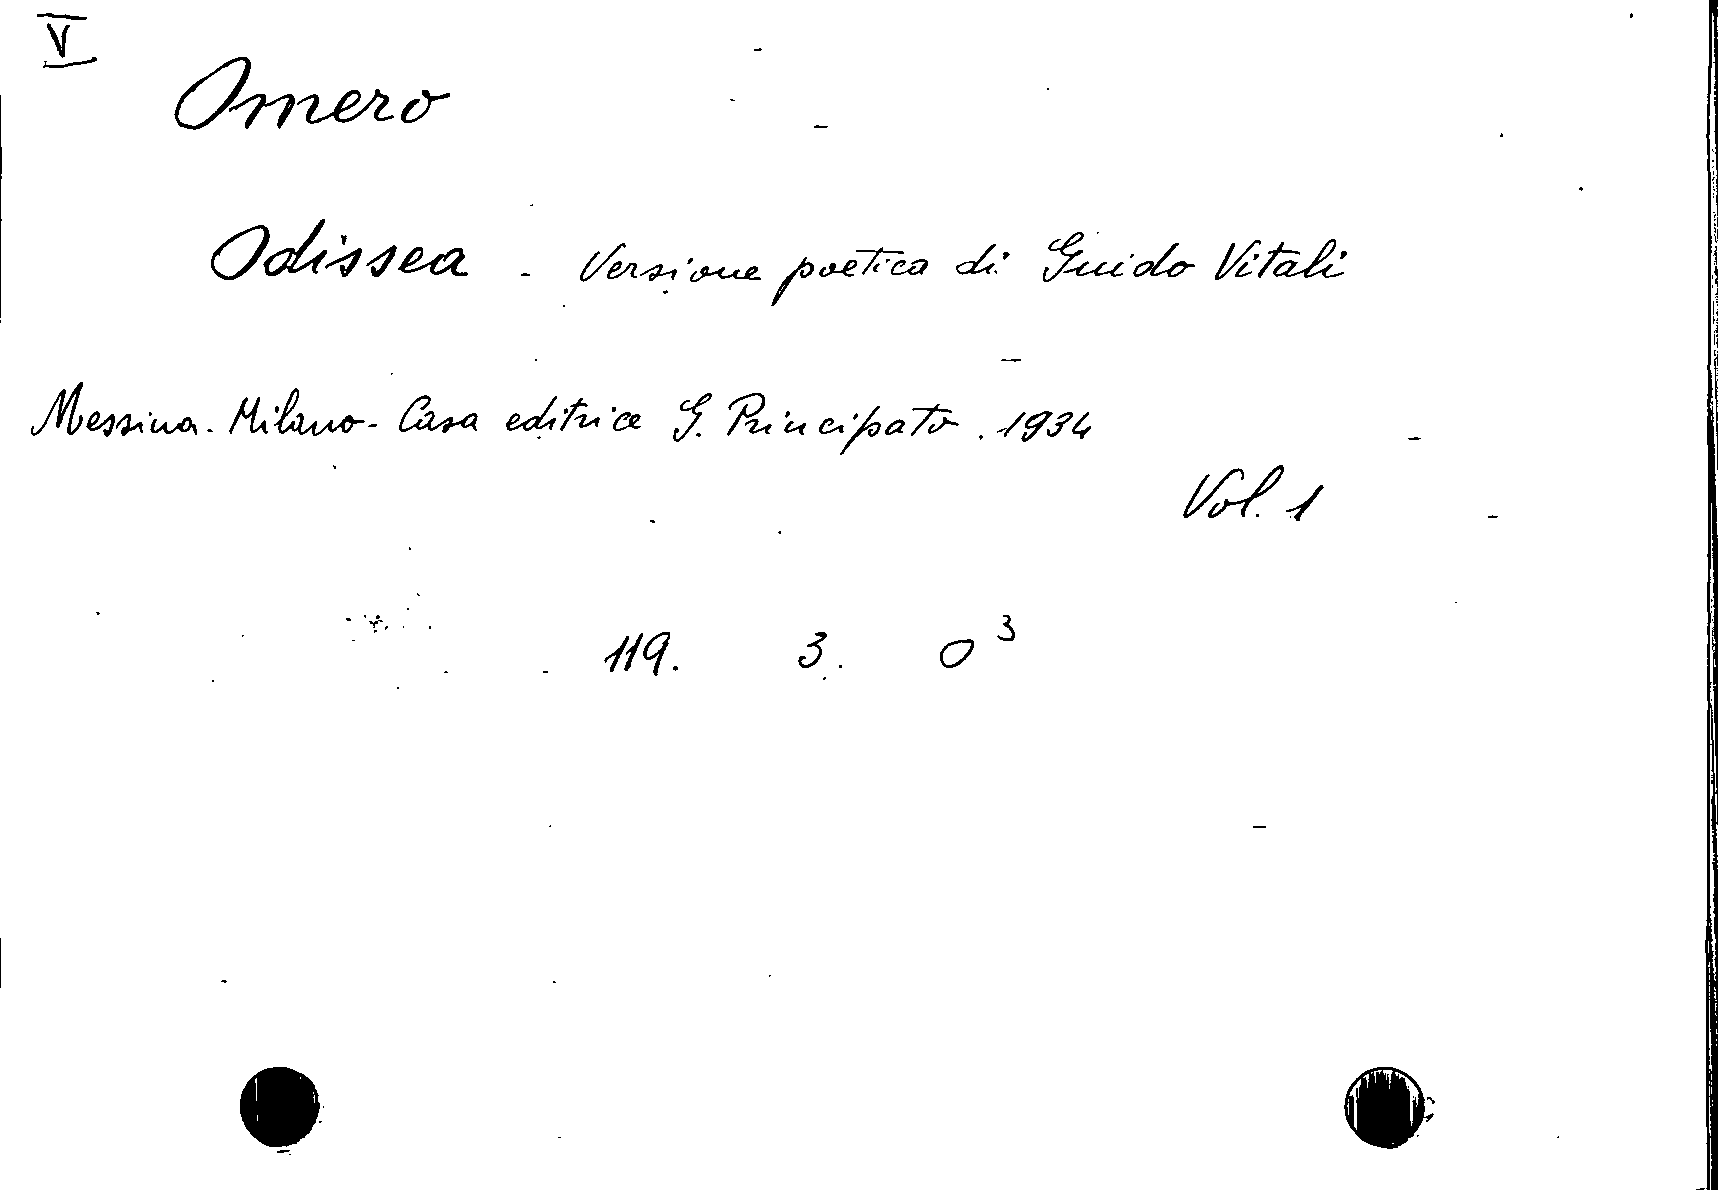 V
Omero
Odissea - Versione poetica di Guido Vitali
Messina - Milano - Casa editrice G. Principato . 1934
Vol. 1
119. 3. 0³